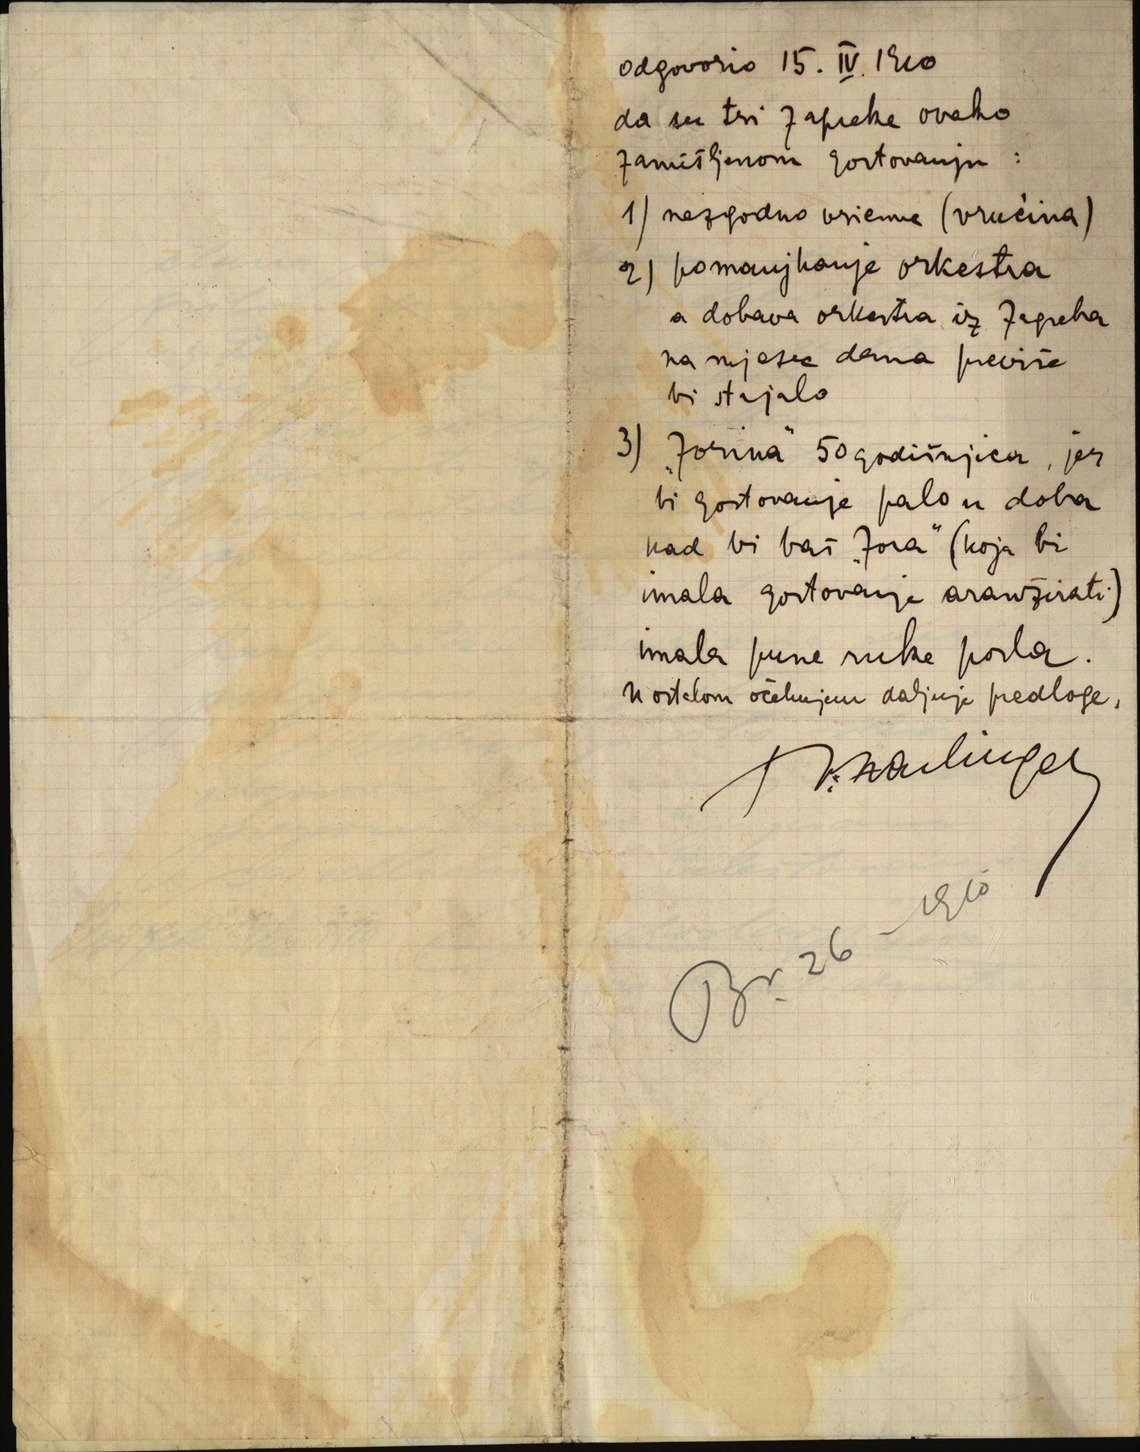 odgovorio 15. IV. 1910
da su tri zapreke ovako
zamišljenom gostovanju :
1) nezgodno vrieme (vrućina)
2) pomanjkanje orkestra
a dobava orkestra iz Zagreba
na mjesec dana previše
bi stajalo
3) „Zorina" 50godišnjica, jer
bi gostovanje palo u doba
kad bi baš „Zora" (koja bi
imala gostovanje aranžirati)
imala pune ruke posla.
U ostalom očekujem daljnje predloge,
Br. 26 – 1910